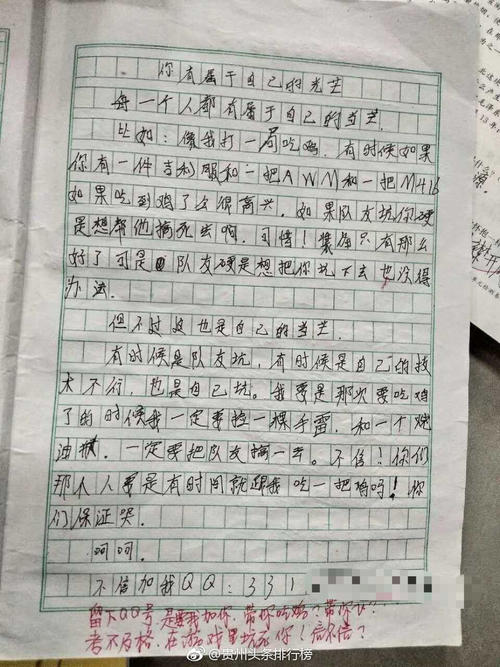 你有属于自己的光芒
每一个人都有属于自己的当芒.
比如:像我打一局吃鸡,有时候如果
你有一件吉利服和一把AWM和一把M416
如果吃到鸡了么很高兴,如果队友坑你硬
是想帮他搞死去啊,可惜!装备只有那么
好了可是队友硬是想把你坑下去也没得
办法.
但不过这也是自己的当芒.
有时候是队友坑,有时候是自己的技
术不行,也是自己坑。我要是那次要吃鸡
了的时候我一定要捡一棵手雷,和一个燃
油撒,一定要把队友搞一去。不信!你们
那个人要是有时间就跟我吃一把鸡吗!你
们保证哭.
呵呵.
不信加我QQ:331
留下QQ号是要我加你,带你吃鸡?带你飞??
考不及格,在游戏里坑死你!信不信?
@贵州头条排行榜